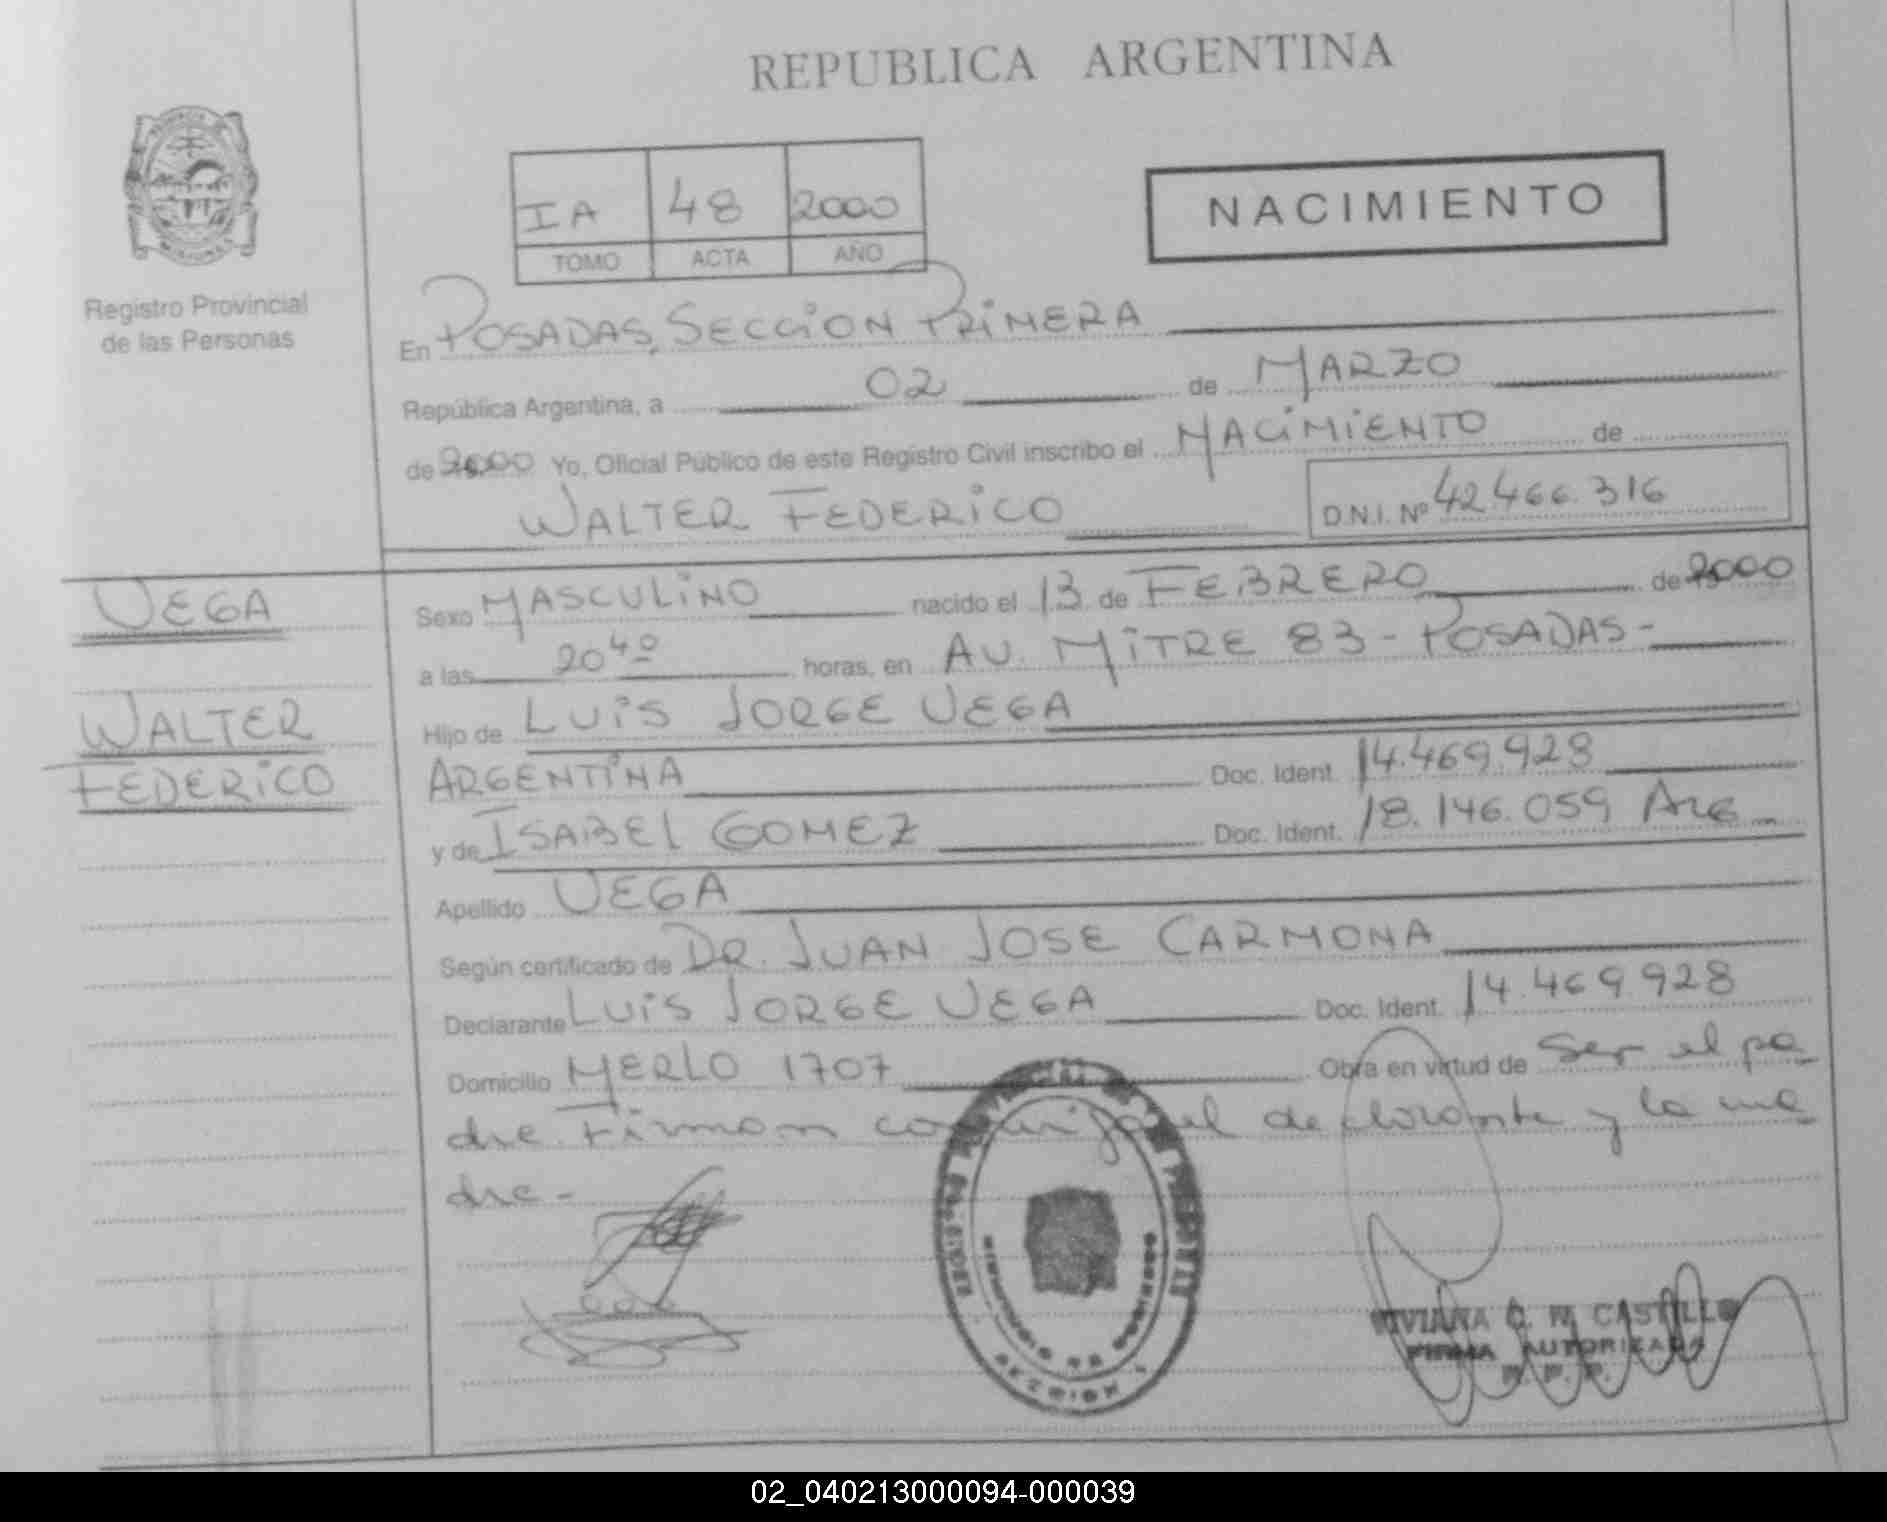 REPUBLICA ARGENTINA
IA 48 2000
TOMO ACTA AÑO
NACIMIENTO
Registro Provincial
de las Personas
En POSADAS, SECCiON PRiMERA
República Argentina, a 02 de MARZO
de 2000 Yo, Oficial Público de este Registro Civil inscribo el NACiMiENTO de
WALTER FEDERiCO D.N.I. Nº 42.466.316
VEGA
WALTER
FEDERiCO
Sexo MASCULiNO nacido el 13 de FEBRERO de 2000
a las 20 40 horas, en AV. MiTRE 83 - POSADAS -
Hijo de LUiS JORGE VEGA
ARGENTiNA Doc. Ident. 14.469.928
y de ISABEL GOMEZ Doc. Ident. 18.146.059 ARG
Apellido VEGA
Según certificado de DR. JUAN JOSE CARMONA
Declarante LUiS JORGE VEGA Doc. Ident. 14.469.928
Domicilio MERLO 1707 Obra en virtud de ser el pa
dre. Firman conmigo el declarante y la ma
dre -
SECCION 1
VIVIANA C. M. CASTILLO
FIRMA AUTORIZADA
R. P. P.
02_040213000094-000039